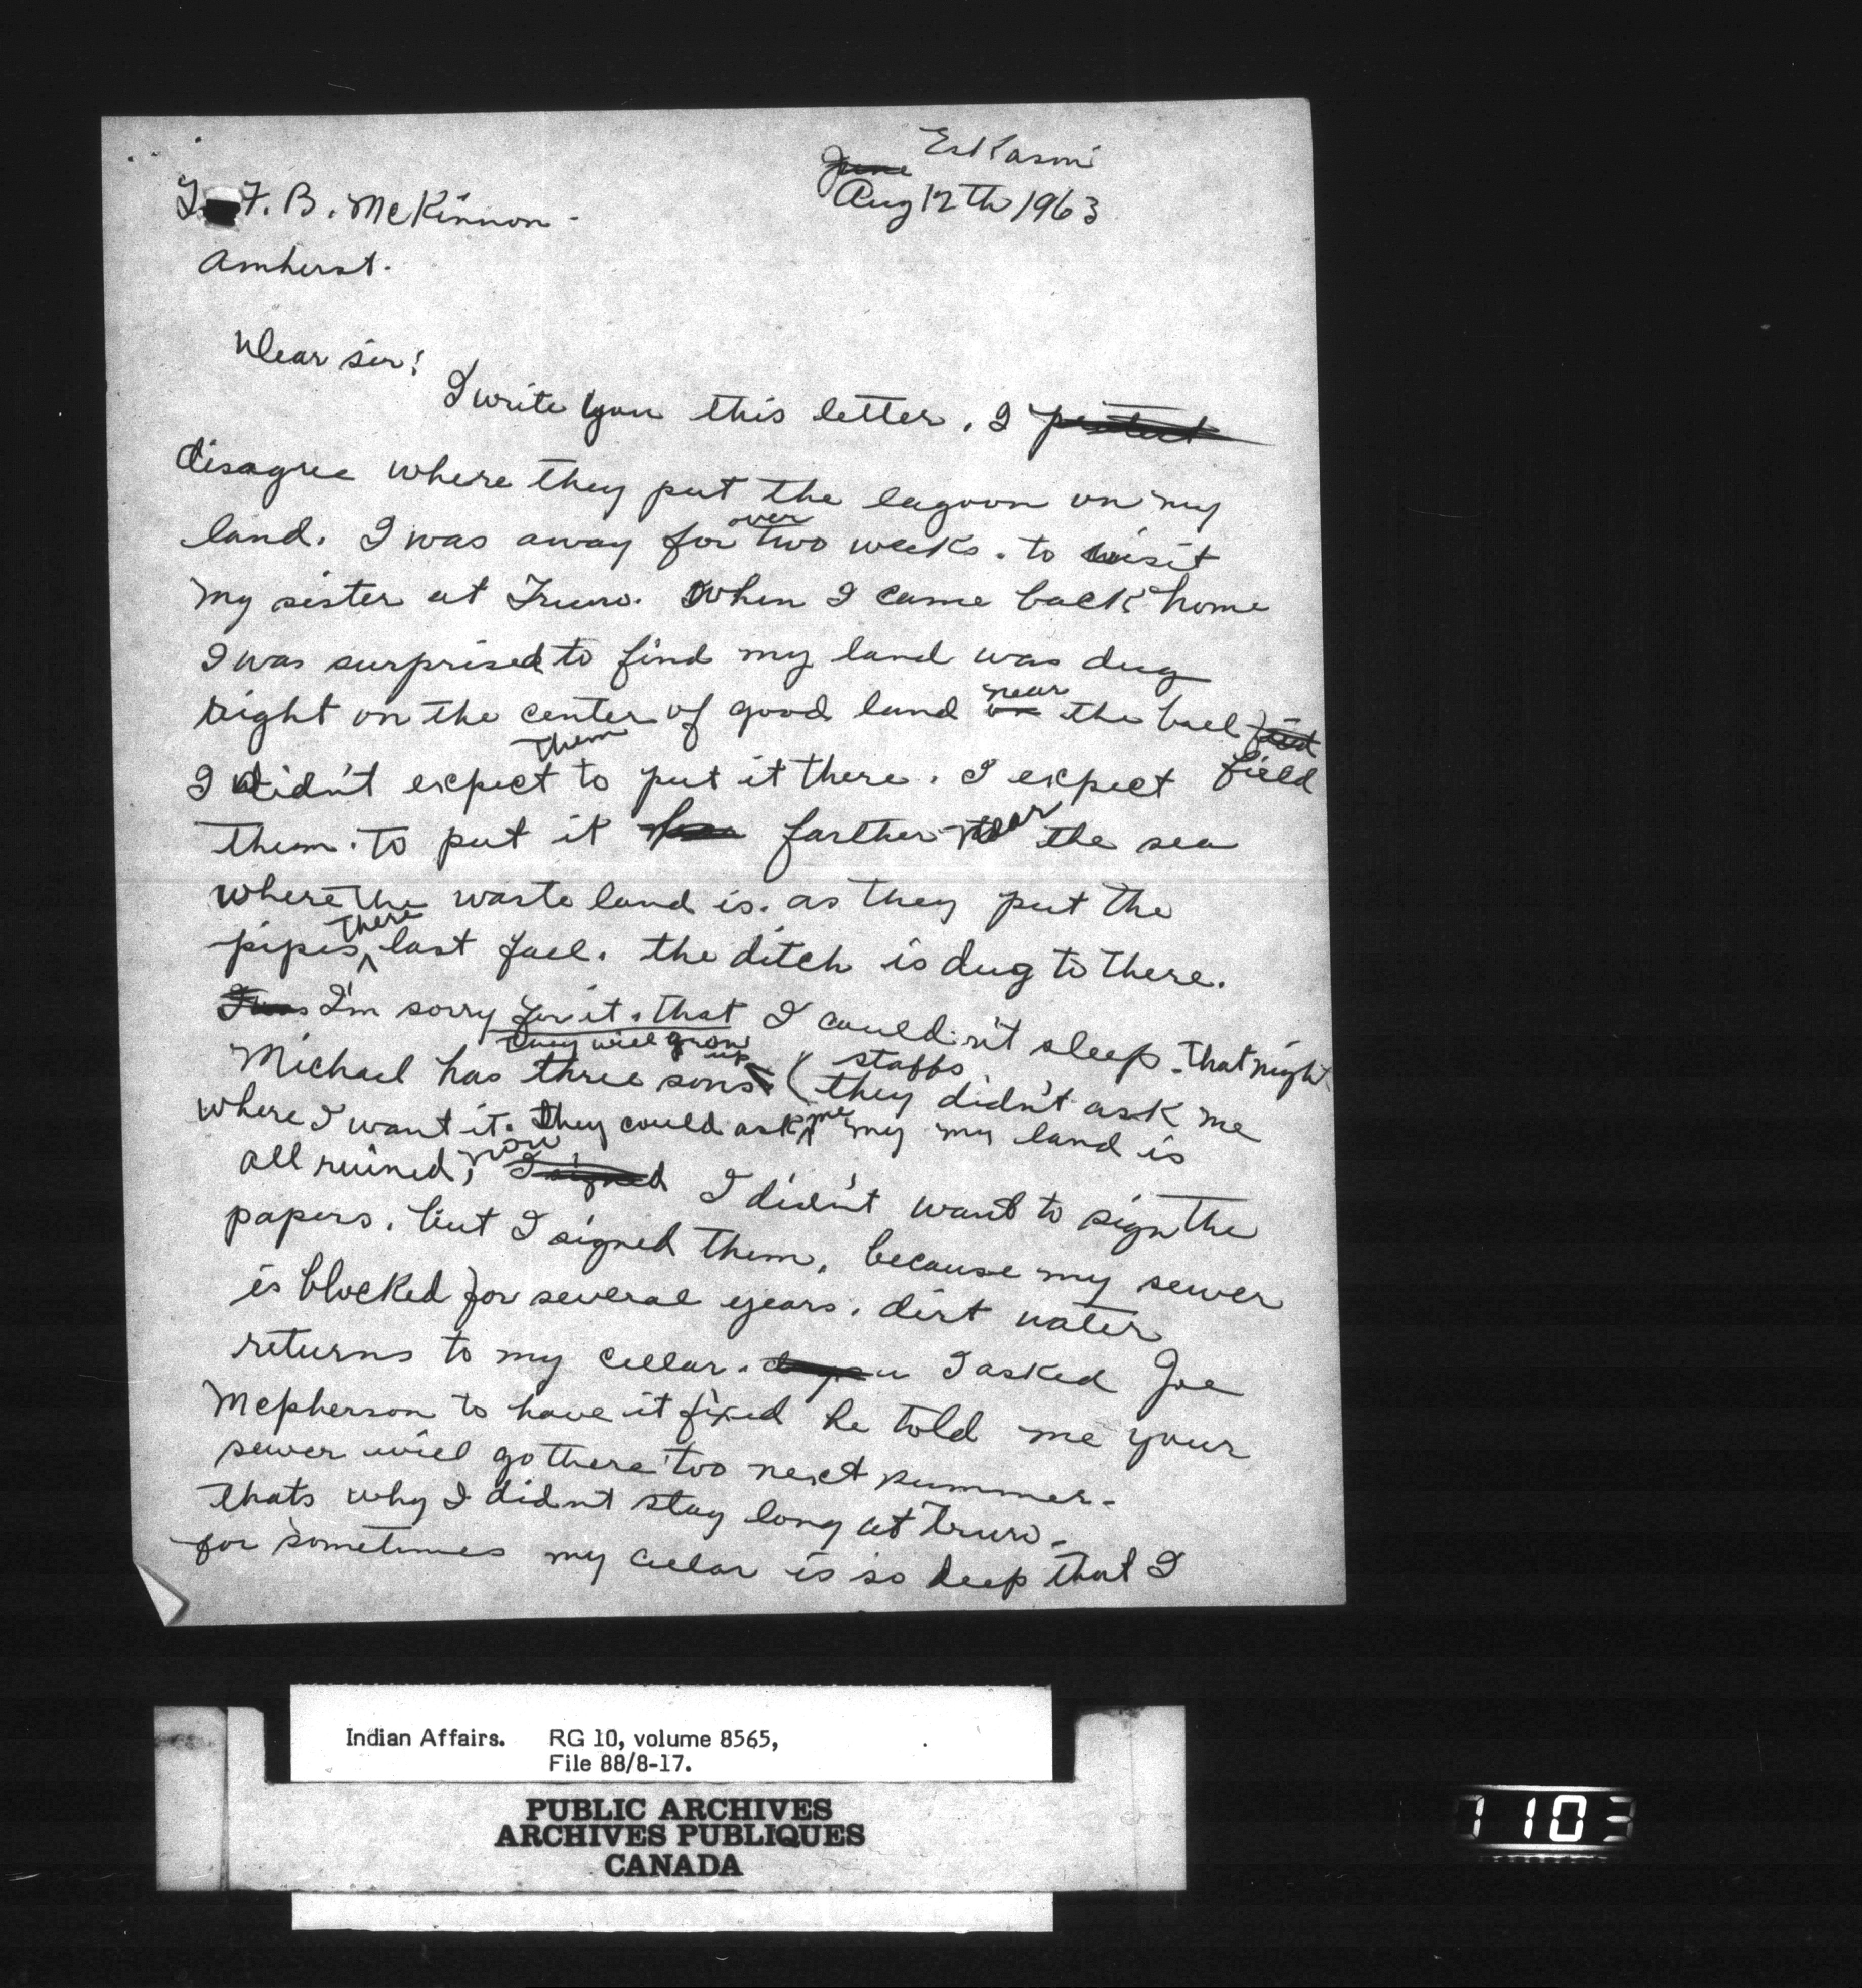 Eskasoni
June
Aug 12th 1963
F. B. McKinnon -
Amherst.
Dear sir!
I write you this letter. I protest
disagree where they put the lagoon on my
land. I was away for over two weeks. to visit
my sister at Truro. When I came back home
I was surprised to find my land was dug
right on the center of good land on near the ball field
field
I didn't expect them to put it there. I expect
them. to put it farther near the sea
where the waste land is. as they put the
pipes there last fall. the ditch is dug to there.
I was I'm sorry for it. that I couldn't sleep that night
Michael has three sons they will grow up ( staffs
they didn't ask me
where I want it. They could ask me my my land is
all ruined, now I signed I didn't want to sign the
papers. but I signed them. because my sewer
is blocked for several years. dirt water
returns to my cellar. I asked Joe
Mcpherson to have it fixed he told me your
sewer will go there too next summer-
thats why I didnt stay long at Truro-
for sometimes my cellar is so deep that I
Indian Affairs. RG 10, volume 8565,
File 88/8-17.
PUBLIC ARCHIVES
ARCHIVES PUBLIQUES
CANADA
1103